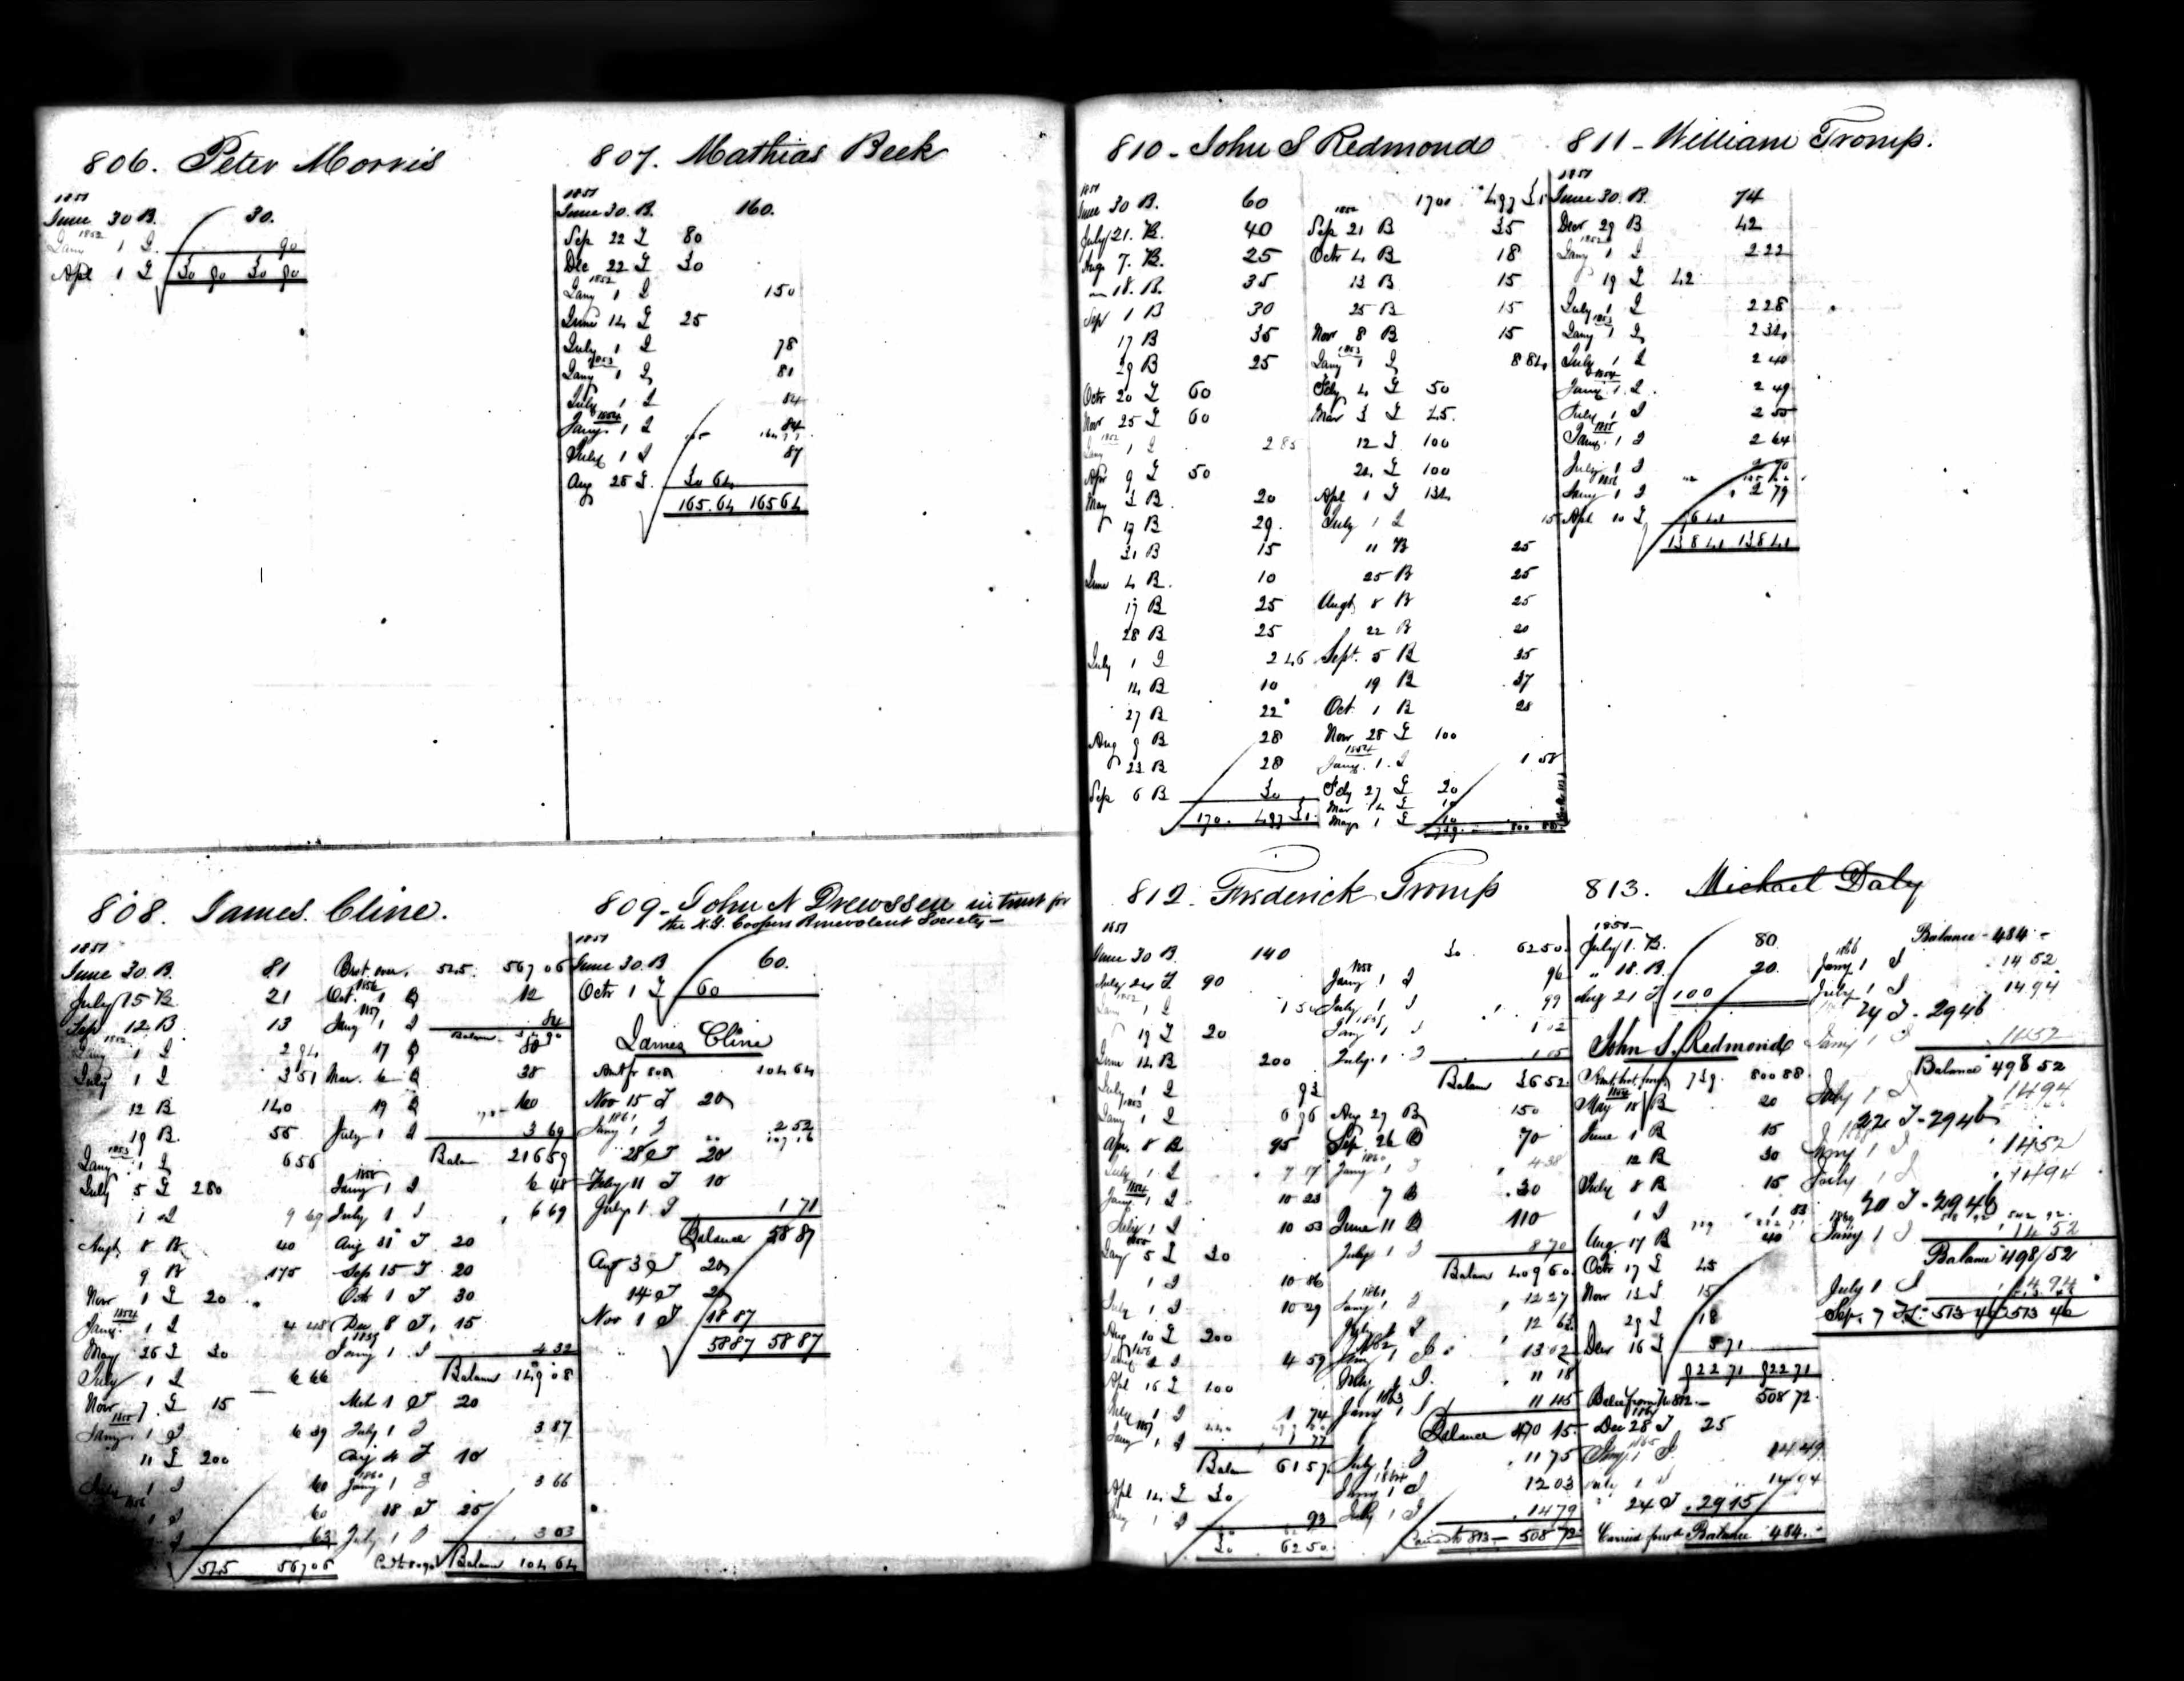 806. Peter Morris
1851
June 30 B. 30.
1852
Jany 1 I. 90
Apl 1 T 30 90 30 90
807. Mathias Beek
1851
June 30. B. 160.
Sep 22 T 80
Dec 22 T 30
1852
Jany 1 I 150
June 14 T 25
July 1 I 78
1853
Jany 1 I 81
July 1 I 84
1854
Jany. 1 I 84
July 1 I 87
Aug 25 T. 30 64
165.64 165 64
808. James Cline.
1851
June 30 B. 81
July 15 B. 21
Sep 12 B 13
1852
Jany 1 I 2 94
July 1 I 3 51
12 B 140
19 B. 55
1853
Jany 1 I 6 56
July 5 T 280
1 I 9 69
Augt 8 B 40
9 B 175
Nov 1 T 20
1854
Jany. 1 I 4 48
May 26 T 30
July 1 I 6 66
Nov 7 T 15
1855
Jany. 1 I 6 39
11 T 200
July 1 I 60
1856
1 I 60
I 63
525 567 06
Brot. over. 525. 567 06
1856
Oct. 1 B 12
1857
Jany 1 I 84
Balance 54 90
17 B 50
Mar. 6 B 38
19 B 60
July 1 I 3 69
Balan 216 59
1858
Jany 1 I 6 48
July 1 I 6 69
Aug 31 T 20
Sep 15 T 20
Oct 1 T 30
Dec 8 T. 15
1859
Jany 1 I 4 32
Balance 149 08
Mch 1 T 20
July 1 I 3 87
Aug 4 T 10
1860
Jany 1 I 3 66
18 T 25
July 1 I 3 03
Cd to 809 Balance 104 64
809. John N Drewssen in trust for
the N.Y. Coopers Benevolent Society
1851
June 30. B 60.
Octr 1 T 60
James Cline
Amt fr 808 104 64
Nov 15 T 20
1861
Jany 1 I 2 52
28 T 20
Feby 11 T 10
July 1. I 1 71
Balance 58 87
Aug 3 T 20
14 T 20
Nov 1 T 18 87
58 87 58 87
810 - John S Redmond
1851
June 30 B. 60
July 21. B. 40
Aug 7. B. 25
18. B. 35
Sep 1 B 30
17 B 35
29 B 25
Octr 20 T 60
Nov 25 T 60
1852
Jany 1 I 2 85
Apr 9 T 50
May 3 B 20
19 B 29.
31 B 15
June 4 B. 10
17 B 25
28 B 25
July 1 I 2 46
14 B 10
27 B 22
Aug 9 B 28
23 B 28
Sep 6 B 30
170. 497 31.
170 0 497 31
1852
Sep 21 B 35
Octr 4 B 18
13 B 15
25 B 15
Nov 8 B 15
1853
Jany 1 I 8 84
Feby 4 T 50
Mar 3 T 45.
12 T 100
24 T 100
Apl 1 T 134
July 1 I 15
11 B 25
25 B 25
Augt 8 B 25
22 B 20
Sept. 5 B 35
19 B 37
Oct. 1 B 28
Nov 25 T 100
1854
Jany. 1. I 1 58
Feby 27 T 20
Mar 14 T 10
May 1 T 10
739. 800 88
811 - William Tromp.
1851
June 30. B. 74
Decr 29 B 42
1852
Jany 1 I 2 22
19 T 42
July 1 I 2 28
1853
Jany 1 I 2 34
July 1 I 2 40
1854
Jany. 1. I 2 49
July 1 I 2 55
1855
Jany. 1 I 2 64
July 1 I 2 70
1856
Jany 1 I 2 79
Apl 10 T 96 41
138 41 138 41
812. Frederick Tromp
1851
June 30 B. 140
July 24 T 90
1852
Jany 1 I 1 50
19 T 20
June 14 B 200
July 1 I 93
1853
Jany 1 I 6 96
Apr. 8 B 95
July 1 I 7 17
1854
Jany 1 I 10 23
July 1 I 10 53
1855
Jany 5 T 30
1 I 10 86
July 1 I 10 29
Aug 10 T 200
1856
Jany 1 I 4 59
Apl 16 T 100
July 1 I 1 74
1857
Jany 1 I 1 77
Balan 61 57
Apl 14 T 30
July 1 I 93
30 62 50
30 62 50.
1858
Jany 1 I 96
July 1 I 99
1859
Jany 1 I 1 02
July 1 I 1 05
Balan 36 52
Aug 29 B 150
Sep 26 B 70
1860
Jany 1 I 4 38
7 B 30
June 11 B 110
July 1 I 8 70
Balan 409 60
1861
Jany 1 I 12 27
July 1 I 12 63
1862
Jany 1 I 13 02
July 1 I. 11 18
1863
Jany 1 I 11 45
Balance 470 15
July 1. I 11 75
1864
Jany 1 I 12 03
July 1 I 14 79
Carried to 813 - 508 72
813. Michael Daly
1851
July 1. B. 80
" 18. B. 20.
Aug 21 T 100
John S. Redmond
739. 800 88
1854
May 15 B 20
June 1 B 15
12 B 30
July 8 B 15
1 I 1 83
Aug. 17 B 40
Octr 17 T 45
Nov 13 T 15
29 T 18
Decr 16 T 5 71
922 71 922 71
Balce from No 812 - 508 72
1864
Dec 28 T 25
1865
Jany 1 I 14 49
July 1 I 14 94
24 T. 29 15
Carried forwd Balance 484. -
Balance - 484 -
1866
Jany 1 I 14 52
July 1 I 14.94
24 T - 29 46
Jany 1 I 14 52
Balance 498 52
July 1 I 14 94
22 T - 29 46
Jany 1 I 14 52
July 1 I 14 94
20 T - 29 46
1869
Jany 1 I 14 52
Balance 498 52
July 1 I 14 94
Sep. 7 T. 513 46 513 46